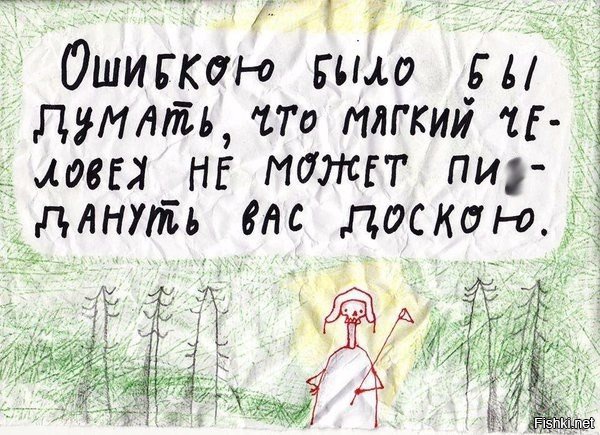 Ошибкою было бы
думать, что мягкий че-
ловек не может пи -
дануть вас доскою.
Fishki.net